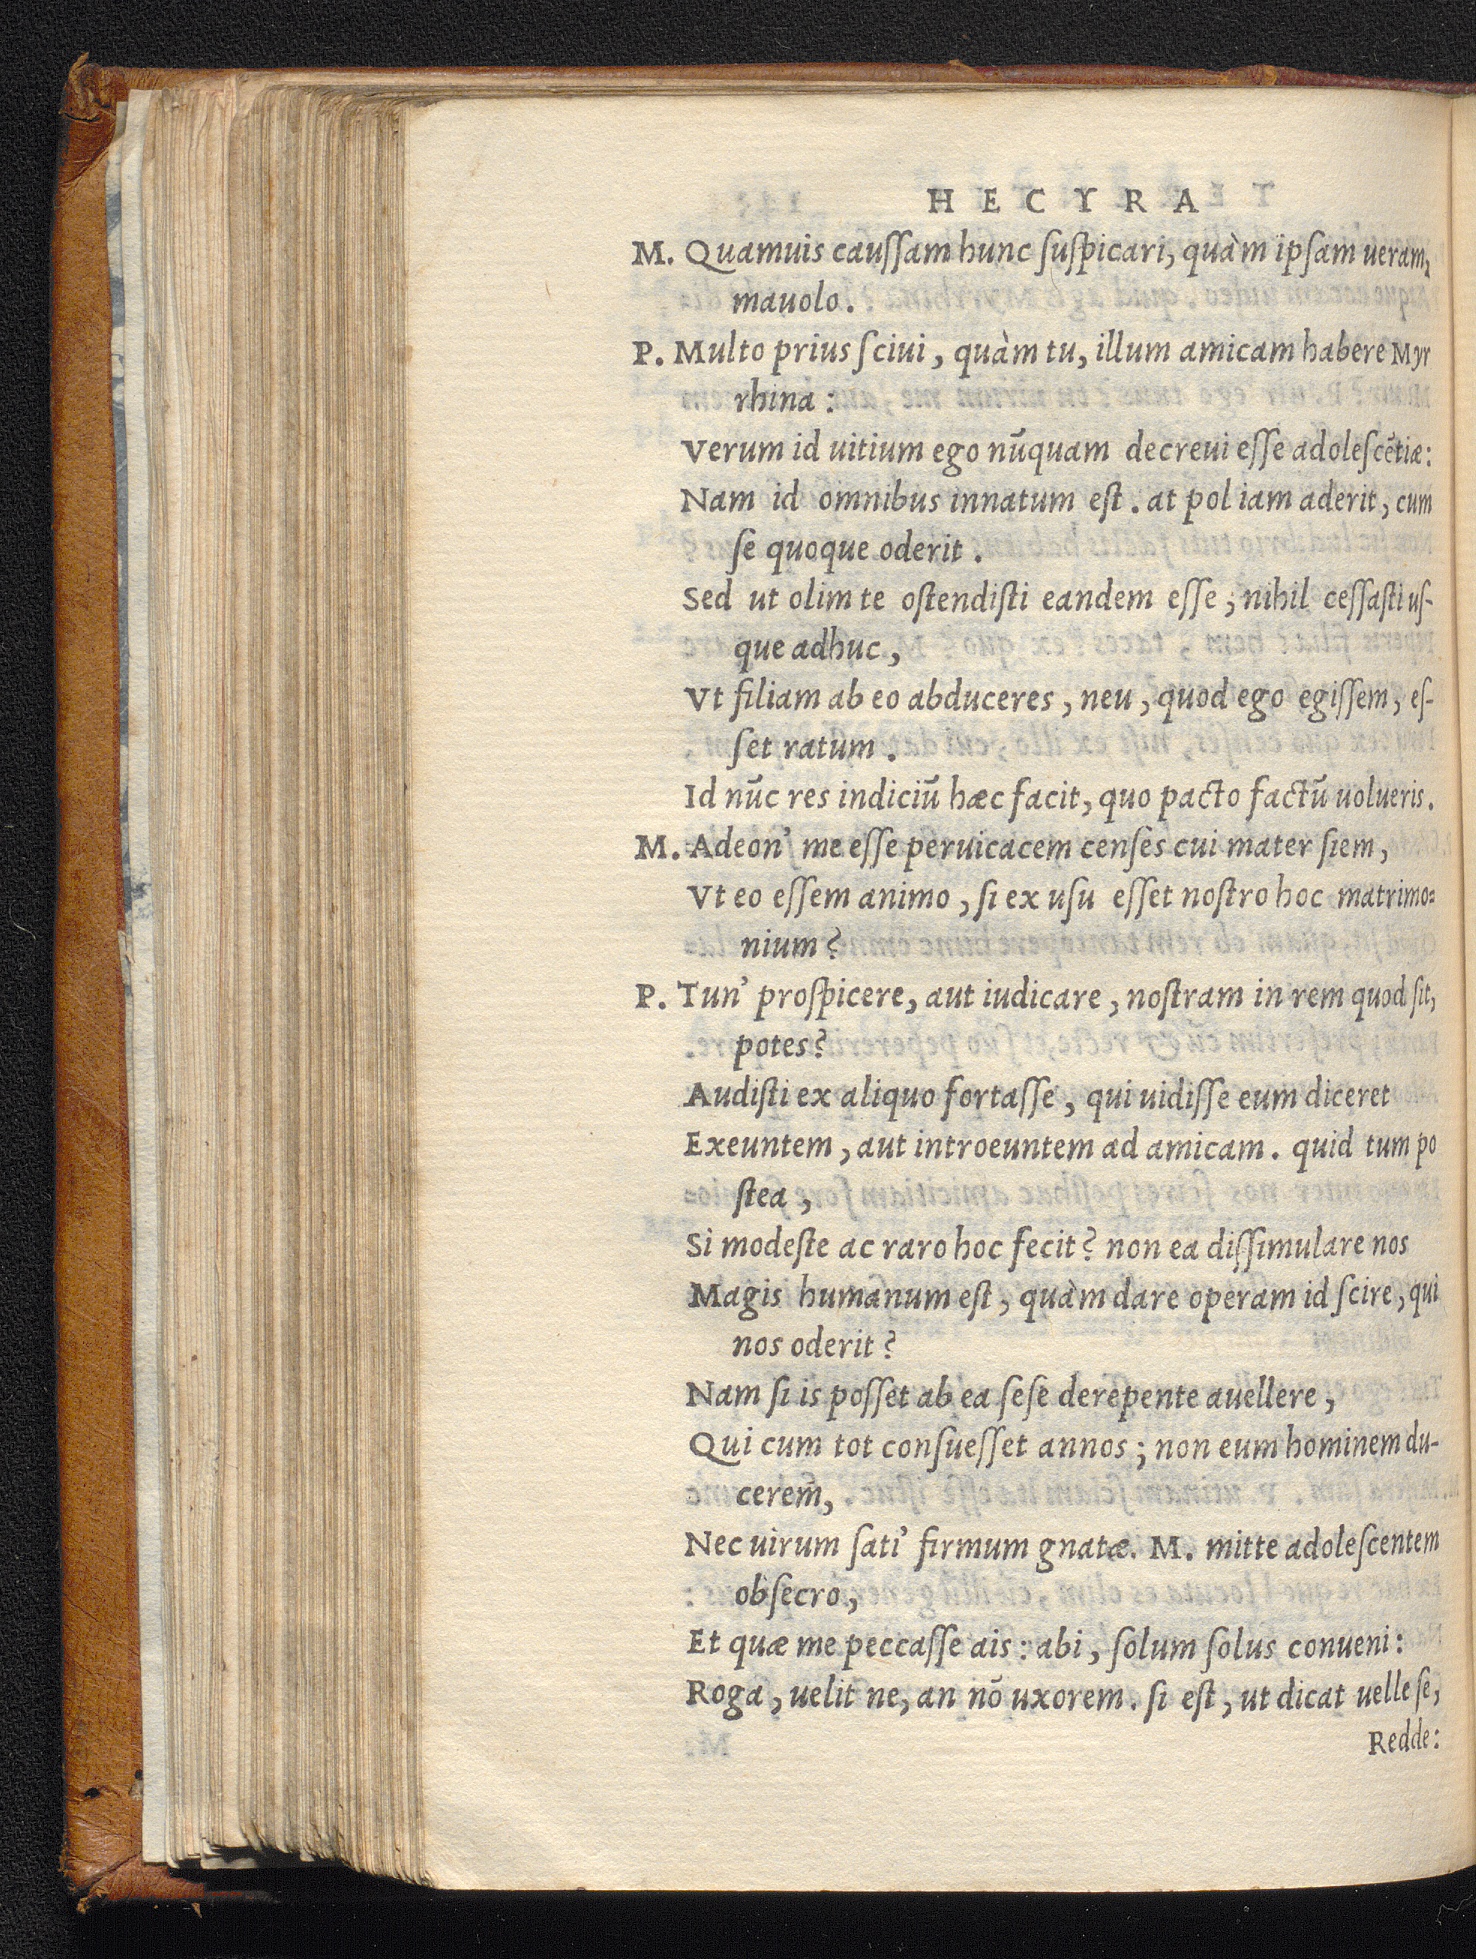 HECYRA
M. Quamuis caussam hunc suspicari, quàm ipsam ueram,
mauolo.
P. Multo prius sciui, quàm tu, illum amicam habere Myr
rhina:
Verum id uitium ego nūquam decreui esse adolescētiæ:
Nam id omnibus innatum est. at pol iam aderit, cum
se quoque oderit.
Sed ut olim te ostendisti eandem esse, nihil cessasti us-
que adhuc,
Vt filiam ab eo abduceres, neu, quod ego egissem, es-
set ratum.
Id nūc res indiciū hæc facit, quo pacto factū uolueris.
M. Adeon' me esse peruicacem censes cui mater siem,
Vt eo essem animo, si ex usu esset nostro hoc matrimo-
nium?
P. Tun' prospicere, aut iudicare, nostram in rem quod sit,
potes?
Audisti ex aliquo fortasse, qui uidisse eum diceret
Exeuntem, aut introeuntem ad amicam. quid tum po
stea,
Si modeste ac raro hoc fecit? non ea dissimulare nos
Magis humanum est, quàm dare operam id scire, qui
nos oderit?
Nam si is posset ab ea sese derepente auellere,
Qui cum tot consuesset annos; non eum hominem du-
cerem,
Nec uirum sati' firmum gnatæ. M. mitte adolescentem
obsecro,
Et quæ me peccasse ais: abi, solum solus conueni:
Roga, uelit ne, an nō uxorem. si est, ut dicat uelle se,
Redde: